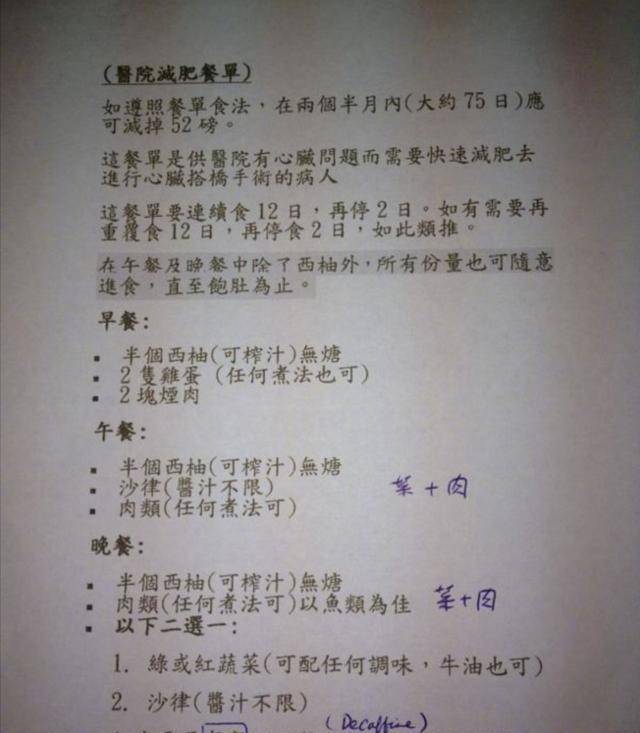 (醫院減肥餐單)
如遵照餐單食法，在兩個半月內(大約 75 日)應
可減掉 52 磅。
這餐單是供醫院有心臟問題而需要快速減肥去
進行心臟搭橋手術的病人
這餐單要連續食 12 日，再停 2 日。如有需要再
重覆食 12 日，再停食 2 日，如此類推。
在午餐及晚餐中除了西柚外，所有份量也可隨意
進食，直至飽肚為止。
早餐:
▪ 半個西柚(可榨汁)無糖
▪ 2 隻雞蛋 (任何煮法也可)
▪ 2 塊煙肉
午餐:
▪ 半個西柚(可榨汁)無糖
▪ 沙律(醬汁不限) 菜+肉
▪ 肉類(任何煮法可)
晚餐:
▪ 半個西柚(可榨汁)無糖
▪ 肉類(任何煮法可)以魚類為佳 菜+肉
▪ 以下二選一:
1. 綠或紅蔬菜(可配任何調味，牛油也可)
2. 沙律(醬汁不限)
(Decaffine)